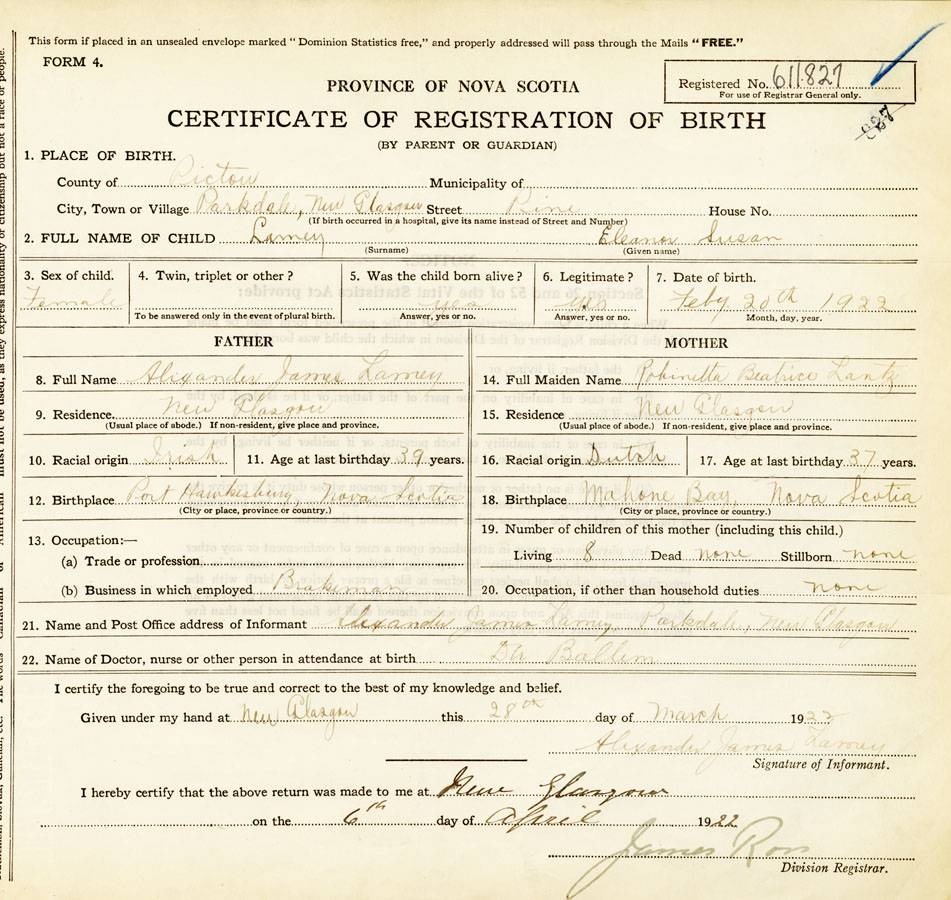 This form if placed in an unsealed envelope marked "Dominion Statistics free," and properly addressed will pass through the Mails "FREE."
FORM 4.
Registered No. 611827
For use of Registrar General only.
827
PROVINCE OF NOVA SCOTIA
CERTIFICATE OF REGISTRATION OF BIRTH
(BY PARENT OR GUARDIAN)
1. PLACE OF BIRTH.
County of Pictou Municipality of
City, Town or Village Parkdale, New Glasgow Street Pine House No.
(If birth occurred in a hospital, give its name instead of Street and Number)
2. FULL NAME OF CHILD Lamey Eleanor Susan
(Surname) (Given name)
3. Sex of child. 4. Twin, triplet or other? 5. Was the child born alive? 6. Legitimate? 7. Date of birth.
Female yes yes Feby 20th 1922
To be answered only in the event of plural birth. Answer, yes or no. Answer, yes or no. Month, day, year.
FATHER
8. Full Name Alixander James Lamey
9. Residence. New Glasgow
(Usual place of abode.) If non-resident, give place and province.
10. Racial origin Irish 11. Age at last birthday 39 years.
12. Birthplace Port Hawkesbury, Nova Scotia
(City or place, province or country.)
13. Occupation:—
(a) Trade or profession
(b) Business in which employed Brakeman
MOTHER
14. Full Maiden Name Robinetta Beatrice Lantz
15. Residence New Glasgow
(Usual place of abode.) If non-resident, give place and province.
16. Racial origin Dutch 17. Age at last birthday 37 years.
18. Birthplace Mahone Bay, Nova Scotia
(City or place, province or country.)
19. Number of children of this mother (including this child.)
Living 8 Dead none Stillborn none
20. Occupation, if other than household duties none
21. Name and Post Office address of Informant Alexander James Lamey, Parkdale, New Glasgow
22. Name of Doctor, nurse or other person in attendance at birth Dr Ballem
I certify the foregoing to be true and correct to the best of my knowledge and belief.
Given under my hand at New Glasgow this 28th day of March 1922
Alexander James Lamey
Signature of Informant.
I hereby certify that the above return was made to me at New Glasgow
on the 6th day of April 1922
James Ross
Division Registrar.